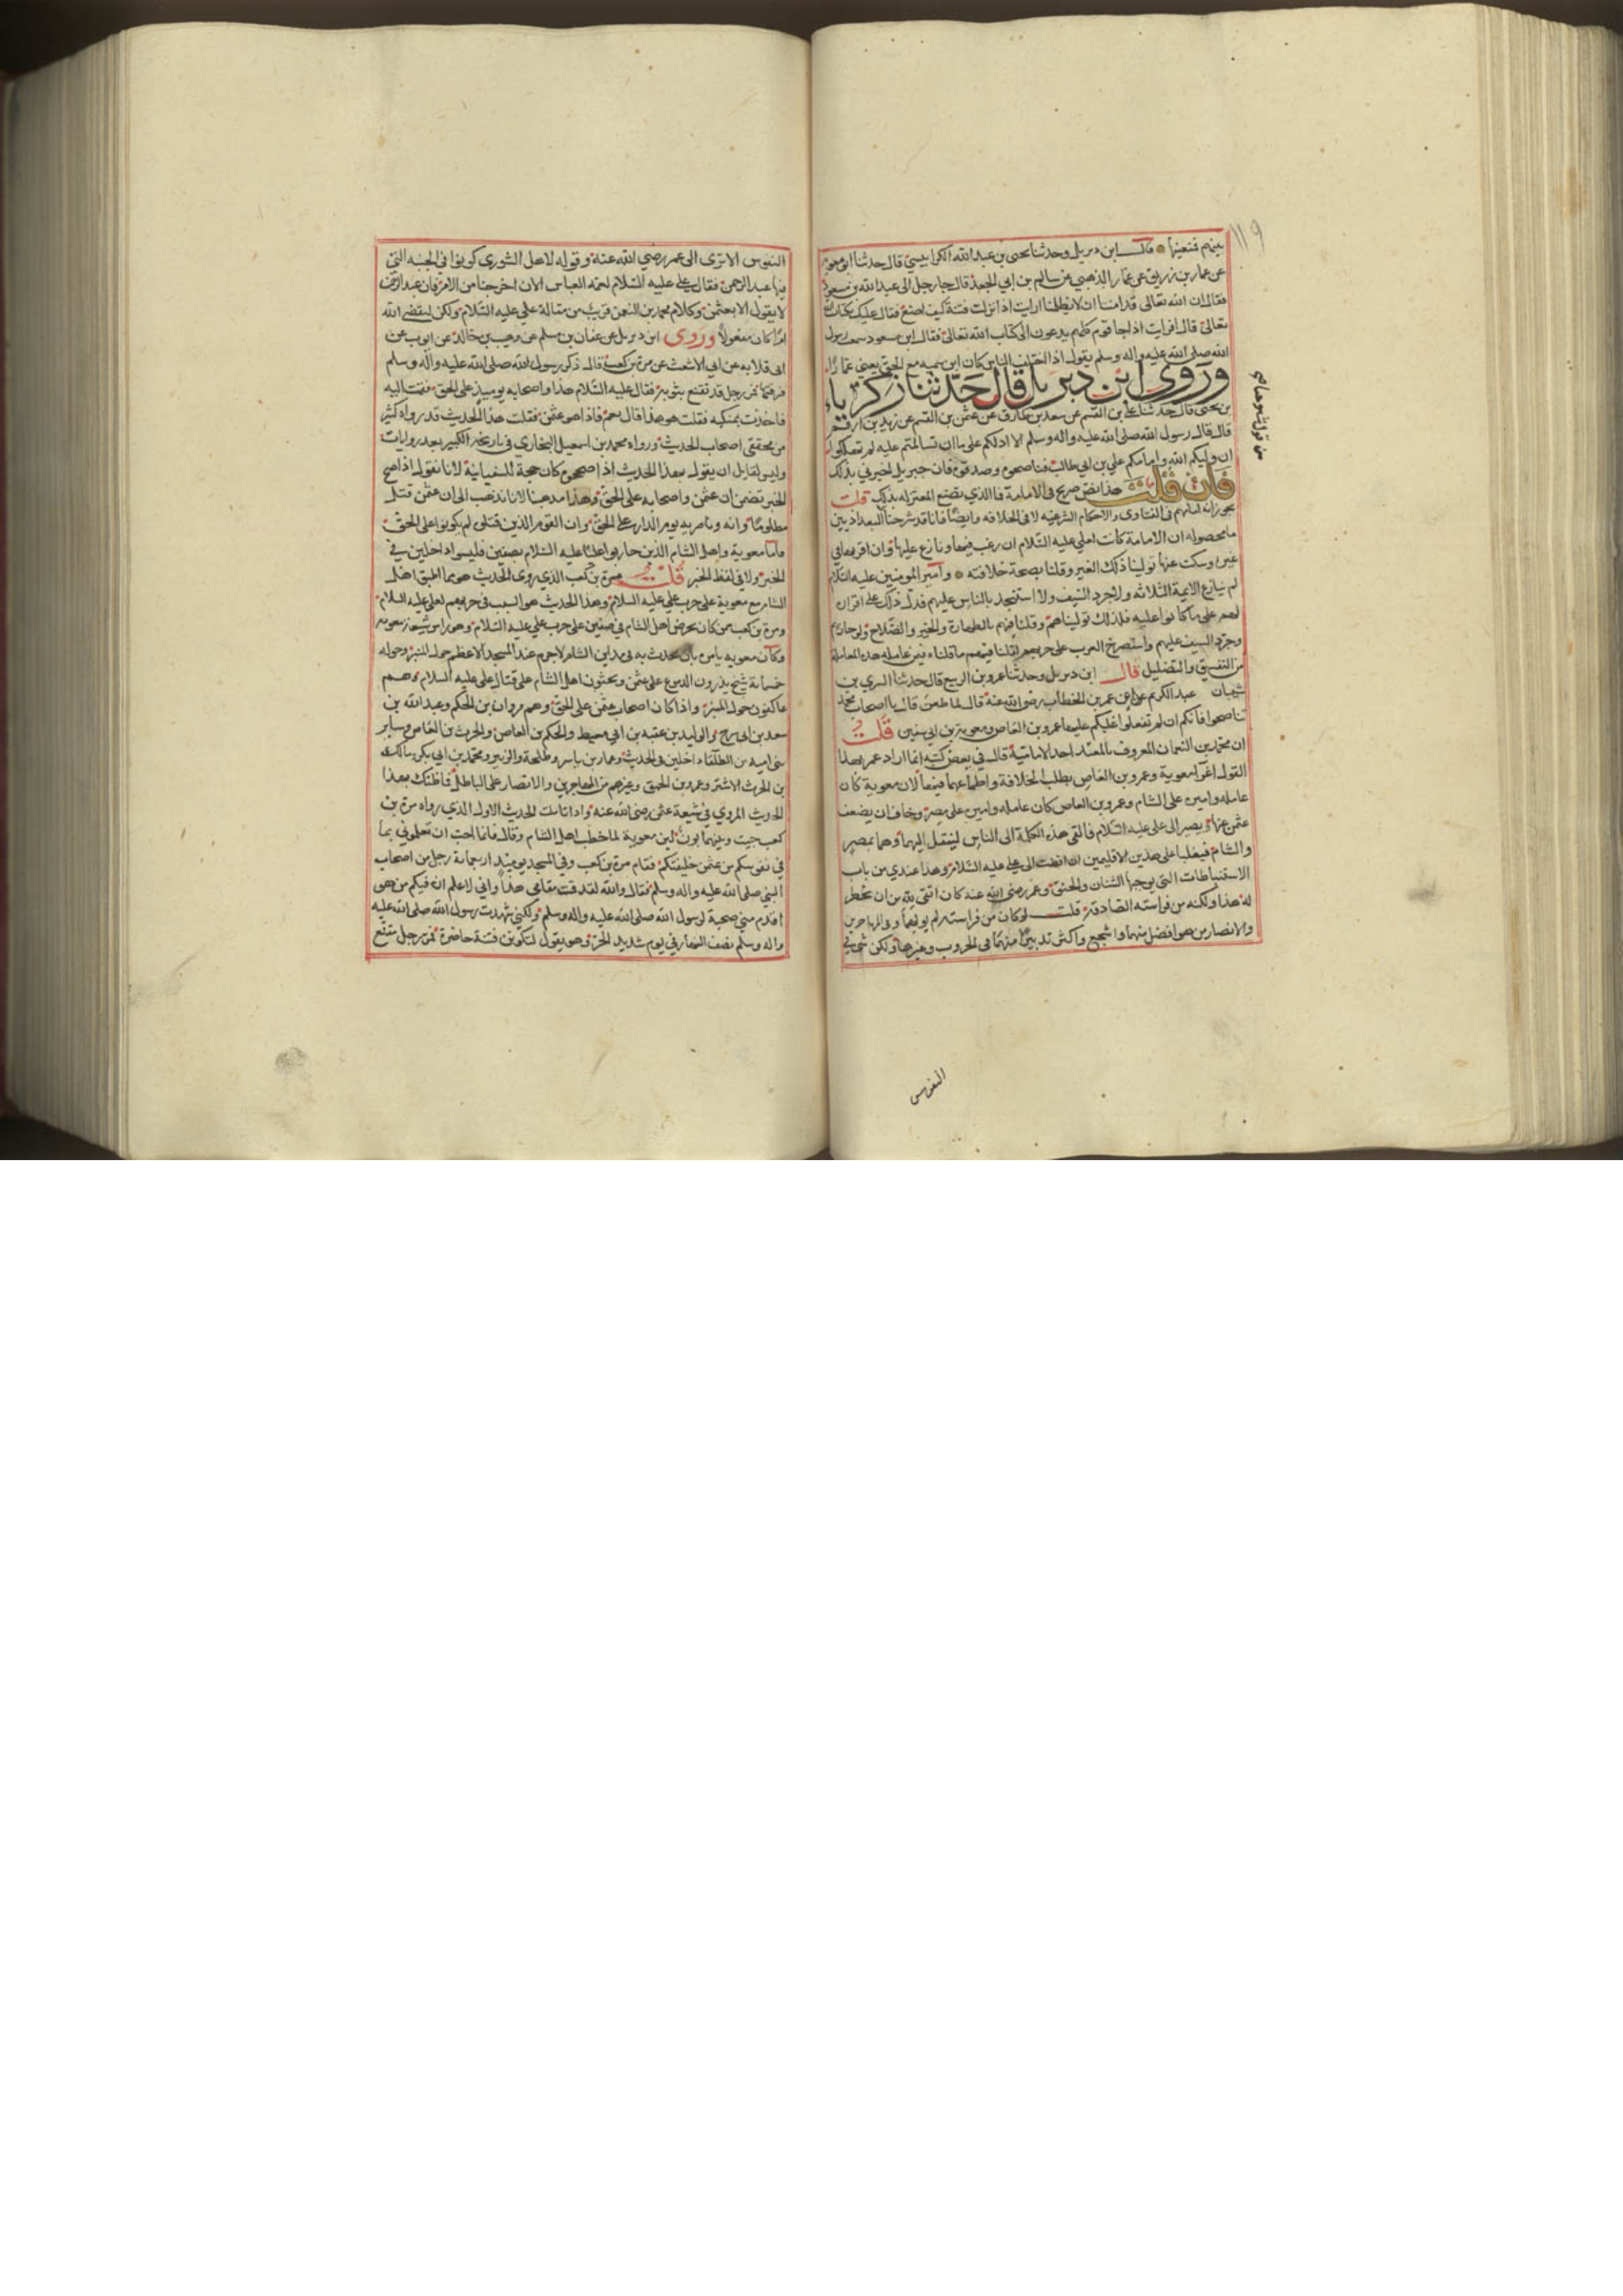 بينهم فتعينها قال ابن ديزيل وحدثنا يحيى بن عبد الله الكرابيسي قال حدثنا ابو معوية
عن عمار بن زريق عن عمار الذهبي عن سالم بن ابي الجعد قال جا رجل الى عبد الله بن مسعود
فقال ان الله تعالى قد امننا ان لا يظلمنا ارايت اذا نزلت فتنة كيف اصنع فقال عليك بكتاب الله
تعالى قال افرايت اذا جا قوم كلهم يدعون الى كتاب الله تعالى فقال ابن مسعود سمعت رسول
الله صلى الله عليه واله وسلم يقول اذا اختلف الناس كان ابن سميه مع الحق يعني عمارا
وروى ابن ديزيل قال حدثنا زكرياء
بن يحيى قال حدثنا علي بن القسم عن سعد بن طارق عن عثمن بن القسم عن زيد بن ارقم
قال قال رسول الله صلى الله عليه واله وسلم الا ادلكم على ما ان تسالمتم عليه لم تهلكوا
ان وليكم الله وامامكم علي بن ابي طالب فناصحوه وصدقوه فان جبريل اخبرني بذلك
فان قلت هذا نص صريح في الامامة فما الذي يصنع المعتزله بذلك قلت
يجوز انه امامهم في الفتاوى والاحكام الشرعيه لا في الخلافه وايضا فانا قد شرحنا البغداذيين
ما محصوله ان الامامة كانت لعلي عليه السلام ان رغب فيها ونازع عليها وان اقرها في
غيره وسكت عنها تولينا ذلك الغير وقلنا بصحة خلافته وامير المومنين عليه السلام
لم ينازع الايمة الثلاثه ولا جرد السيف ولا استنجد بالناس عليهم فدل ذلك على اقراره
لهم على ما كانوا عليه فلذلك توليناهم وقلنا فيهم بالطهارة والخير والصلاح ولو حاربهم
وجرد السيف عليهم واستصرخ العرب على حربهم لقلنا فيهم ما قلناه فيمن عامله هذه المعاملة
من التفسيق والتضليل قال ابن ديزيل وحدثنا عمرو بن الربيع قال حدثنا السري بن
شيبان عبد الكريم عن عمر بن الخطاب رضي الله عنه قال لما طعن قال يا اصحاب محمد
تناصحوا فانكم ان لم تفعلوا غلبكم عليها عمرو بن العاص ومعوية بن ابي سفين قلت
ان محمد بن النعمان المعروف بالمفيد احد الامامية قال في بعض كتبه انما اراد عمر بهذا
القول اغرا معوية وعمرو بن العاص بطلب الخلافة واطماعهما فيها لان معوية كان
عامله واميره على الشام وعمرو بن العاص كان عامله واميره على مصر وخاف ان يضعف
عثمن عنها ويصير الى علي عليه السلام فالقى هذه الكلمة الى الناس لينقل اليهما وهما بمصر
والشام فيغلبا على هذين الاقليمين ان افضت الى علي عليه السلام وهذا عندي من باب
الاستنباطات التي يوجبها الشنان والحنق وعمر رضي الله عنه كان اتقى لله من ان يخطر
له هذا ولكنه من فراسته الصادقة قلت لو كان من فراسته لم يولهما وفي المهاجرين
والانصار من هو افضل منهما واشجع واكثر تدبيرا منهما في الحروب وغيرها ولكن شي في
النفوس
١١٩
النفوس الا ترى الى عمر رضي الله عنه وقوله لاهل الشورى كونوا في الجنبه التي
فيها عبد الرحمن فقال علي عليه السلام لعمه العباس الان اخرجنا من الامر فان عبد الرحمن
لا يقول الا بعثمن وكلام محمد بن النعمن قريب من مقالة علي عليه السلام ولكن ليقضي الله
امرا كان مفعولا وروى ابن ديزيل عن عفان بن مسلم عن وهيب بن خالد عن ايوب عن
ابي قلابه عن ابي الاشعث عن مرة بن كعب قال ذكر رسول الله صلى الله عليه واله وسلم
فتنة فمر رجل قد تقنع بثوبه فقال عليه السلام هذا واصحابه يوميذ على الحق فقمت اليه
فاخذت بمنكبه فقلت هو هذا قال نعم فاذا هو عثمن فقلت هذا الحديث قد رواه كثير
من محققي اصحاب الحديث ورواه محمد بن اسمعيل البخاري في تاريخه الكبير بعدة روايات
وليس لقايل ان يقول بهذا الحديث اذا صححتموه كان حجة للسفيانية لانا نقول اذا صح
الخبر تضمن ان عثمن واصحابه على الحق وهذا مذهبنا لانا نذهب الى ان عثمن قتل
مظلوما وانه وناصريه يوم الدار على الحق وان القوم الذين قتلوه لم يكونوا على الحق
فاما معوية واهل الشام الذين حاربوا عليا عليه السلام بصفين فليسوا داخلين في
الخبر ولا في لفظ الخبر قلت مرة بن كعب الذي روى الحديث هو مما اطبق اهل
الشام مع معوية على حرب علي عليه السلام وهذا الحديث هو السبب في حربهم لعلي عليه السلام
ومرة بن كعب ممن كان يحرض اهل الشام في صفين على حرب علي عليه السلام وهو راس شيعة معويه
وكان معويه يامره بان يحدث به في مداين الشام لاجرم عند المسجد الاعظم حول المنبر وحوله
خمسماية شيخ يذرون الدموع على عثمن ويحثون اهل الشام على قتال علي عليه السلام وهم
عاكفون حول المنبر واذا كان اصحاب عثمن على الحق وهم مروان بن الحكم وعبد الله بن
سعد بن ابي سرح والوليد بن عقبه بن ابي معيط والحكم بن العاص والحرث بن العاص وساير
بني اميه من الطلقاء داخلين في الحديث وعمار بن ياسر وطلحة والزبير ومحمد بن ابي بكر ومالك
بن الحرث الاشتر وعمرو بن الحمق وغيرهم من المهاجرين والانصار على الباطل فما ظنك بهذا
الحديث المروي في شيعة عثمن رضي الله عنه واذا تاملت الحديث الاول الذي رواه مرة بن
كعب حيث وبينهما بون لين معوية لما خطب اهل الشام وقال فانما احب ان تعلموني بما
في نفوسكم من عثمن خليفتكم فقام مرة بن كعب وفي المسجد يوميذ اربعماية رجل من اصحاب
النبي صلى الله عليه واله وسلم فقال والله لقد قمت مقامي هذا واني لاعلم ان فيكم من هو
اقدم مني صحبة لرسول الله صلى الله عليه واله وسلم ولكني شهدت رسول الله صلى الله عليه
واله وسلم نصف النهار في يوم شديد الحر وهو يقول لتكونن فتنة حاضرة فمر رجل مقنع